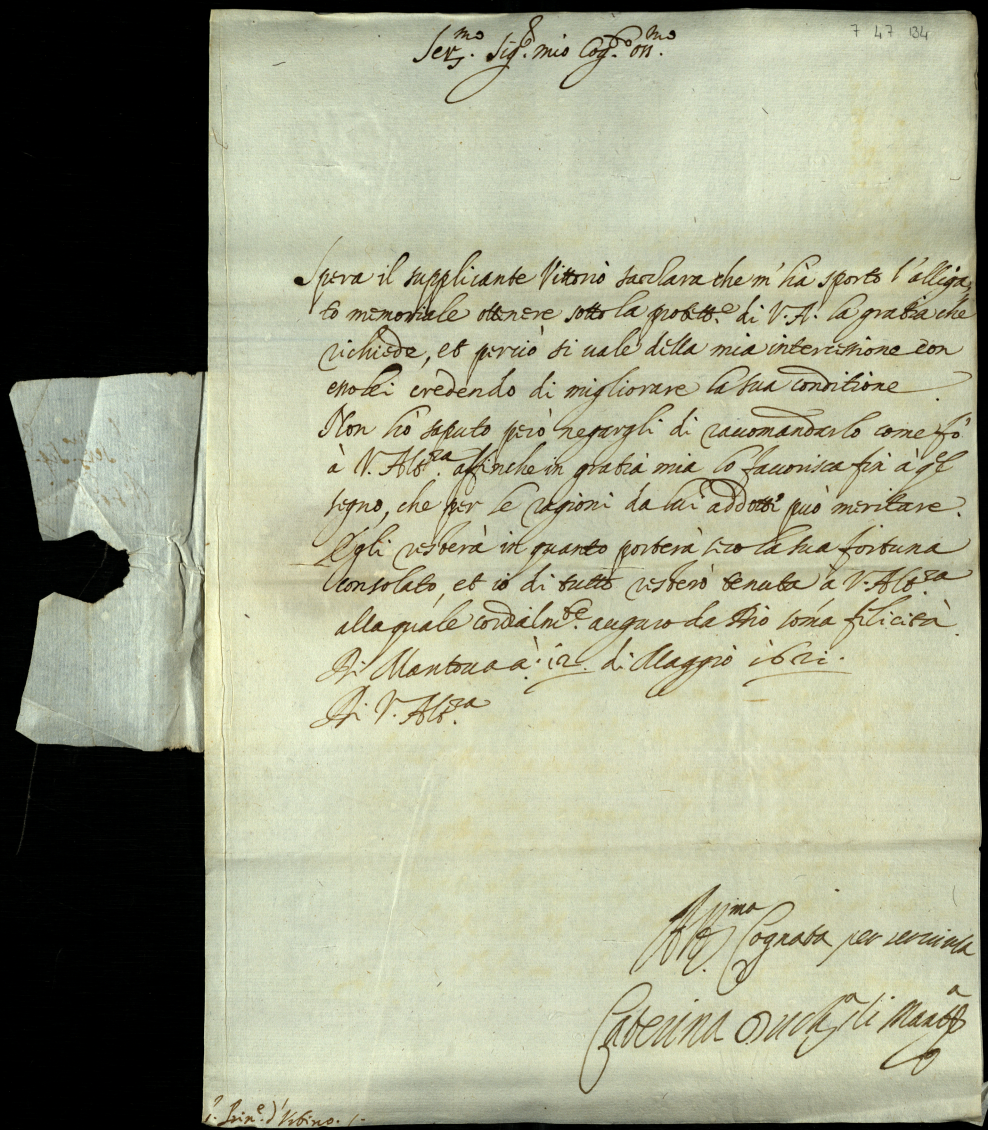 7 47 134
Ser.mo Sig.r mio Cog.to on.mo
Spera il supplicante Vittorio che m'hà sporto l'alliga,
to memoriale ottenere sotto la protett.e di V. A. la gratia che
richiede, et perciò si uale della mia intercessione con
credendo di migliorare la sua conditione.
Non hò saputo però negargli di racomandarlo come fò
à V. Alt.za affinche in gratia mia lo fauorisca fin à q.l
segno, che per le ragioni da lui addotte può meritare.
Egli resterà in quanto porterà seco la sua fortuna
consolato, et io di tutto resterò tenuta à V. Alt.za
alla quale cordialm.te auguro da Dio som̃a felicità.
Di Mantoua à: 12. di Maggio 1621.
Di V. Alt.za
Aff.ma Cognata per seruirla
Caterina Duch.a di Mant.a
S. Prin.e d'Vrbino.